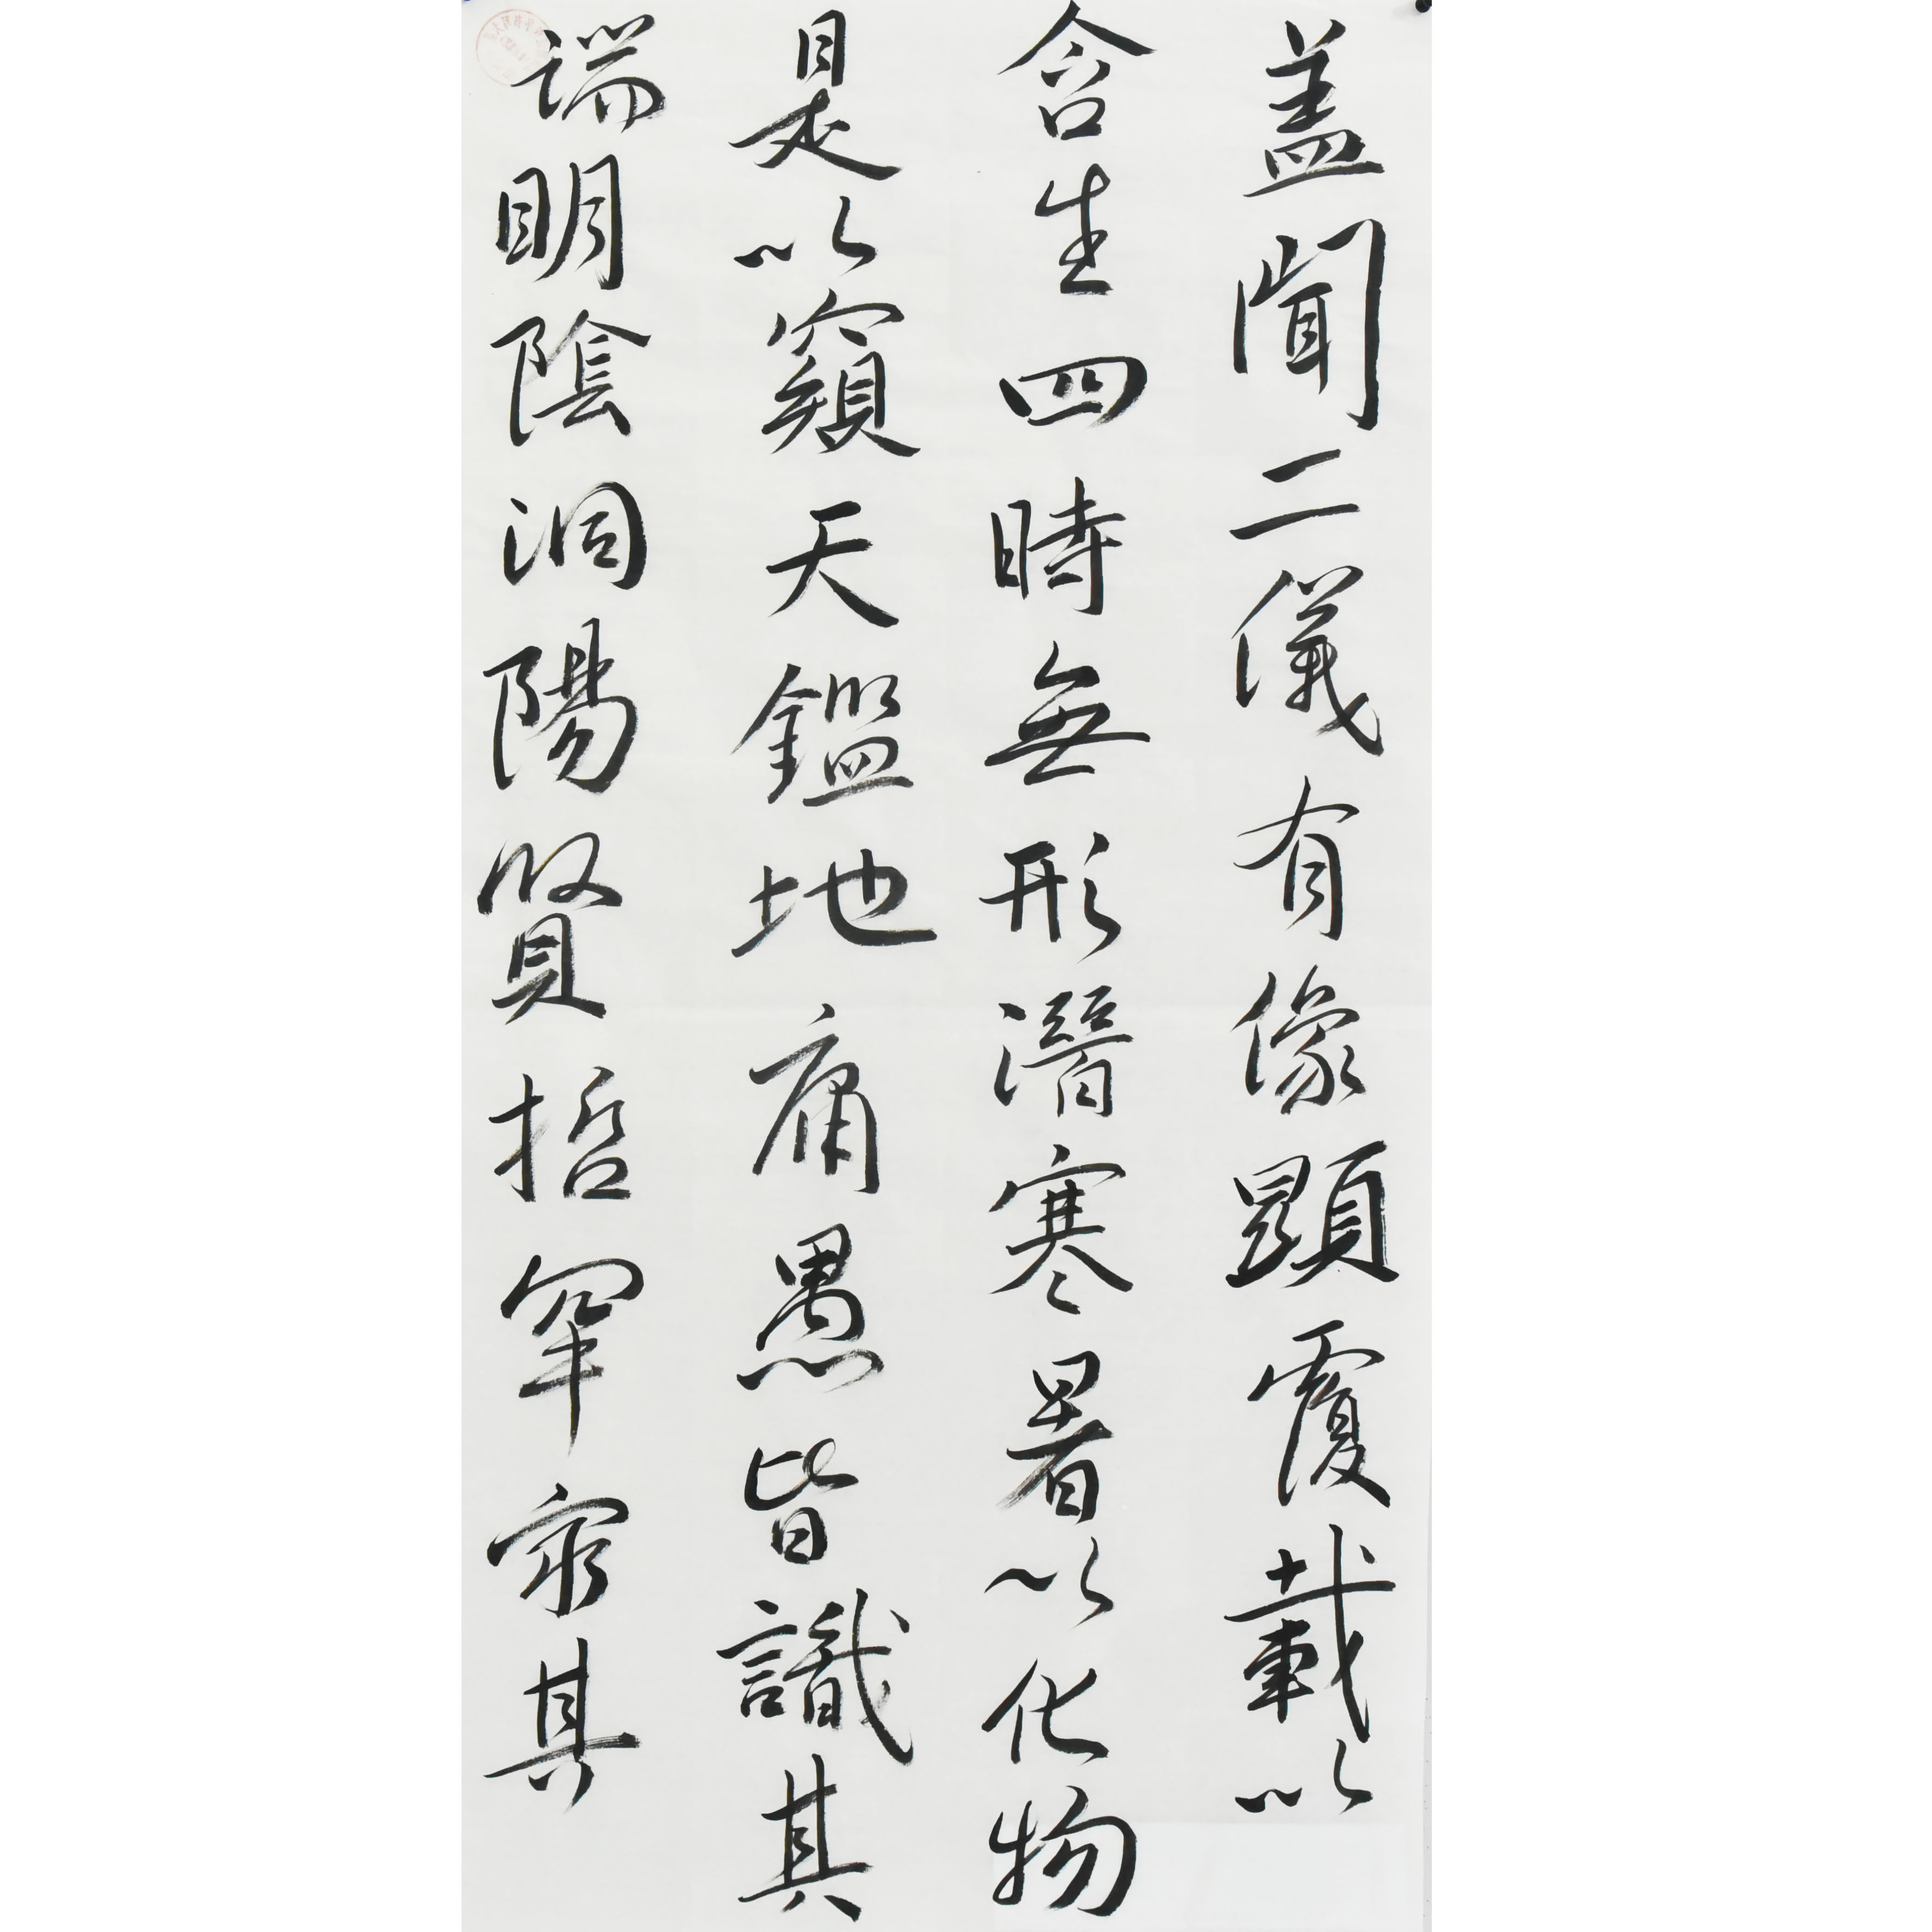 蓋聞二儀有像顯覆載以
含生四時無形潛寒暑以化物
是以窺天鑑地庸愚皆識其
端明陰洞陽賢哲罕窮其